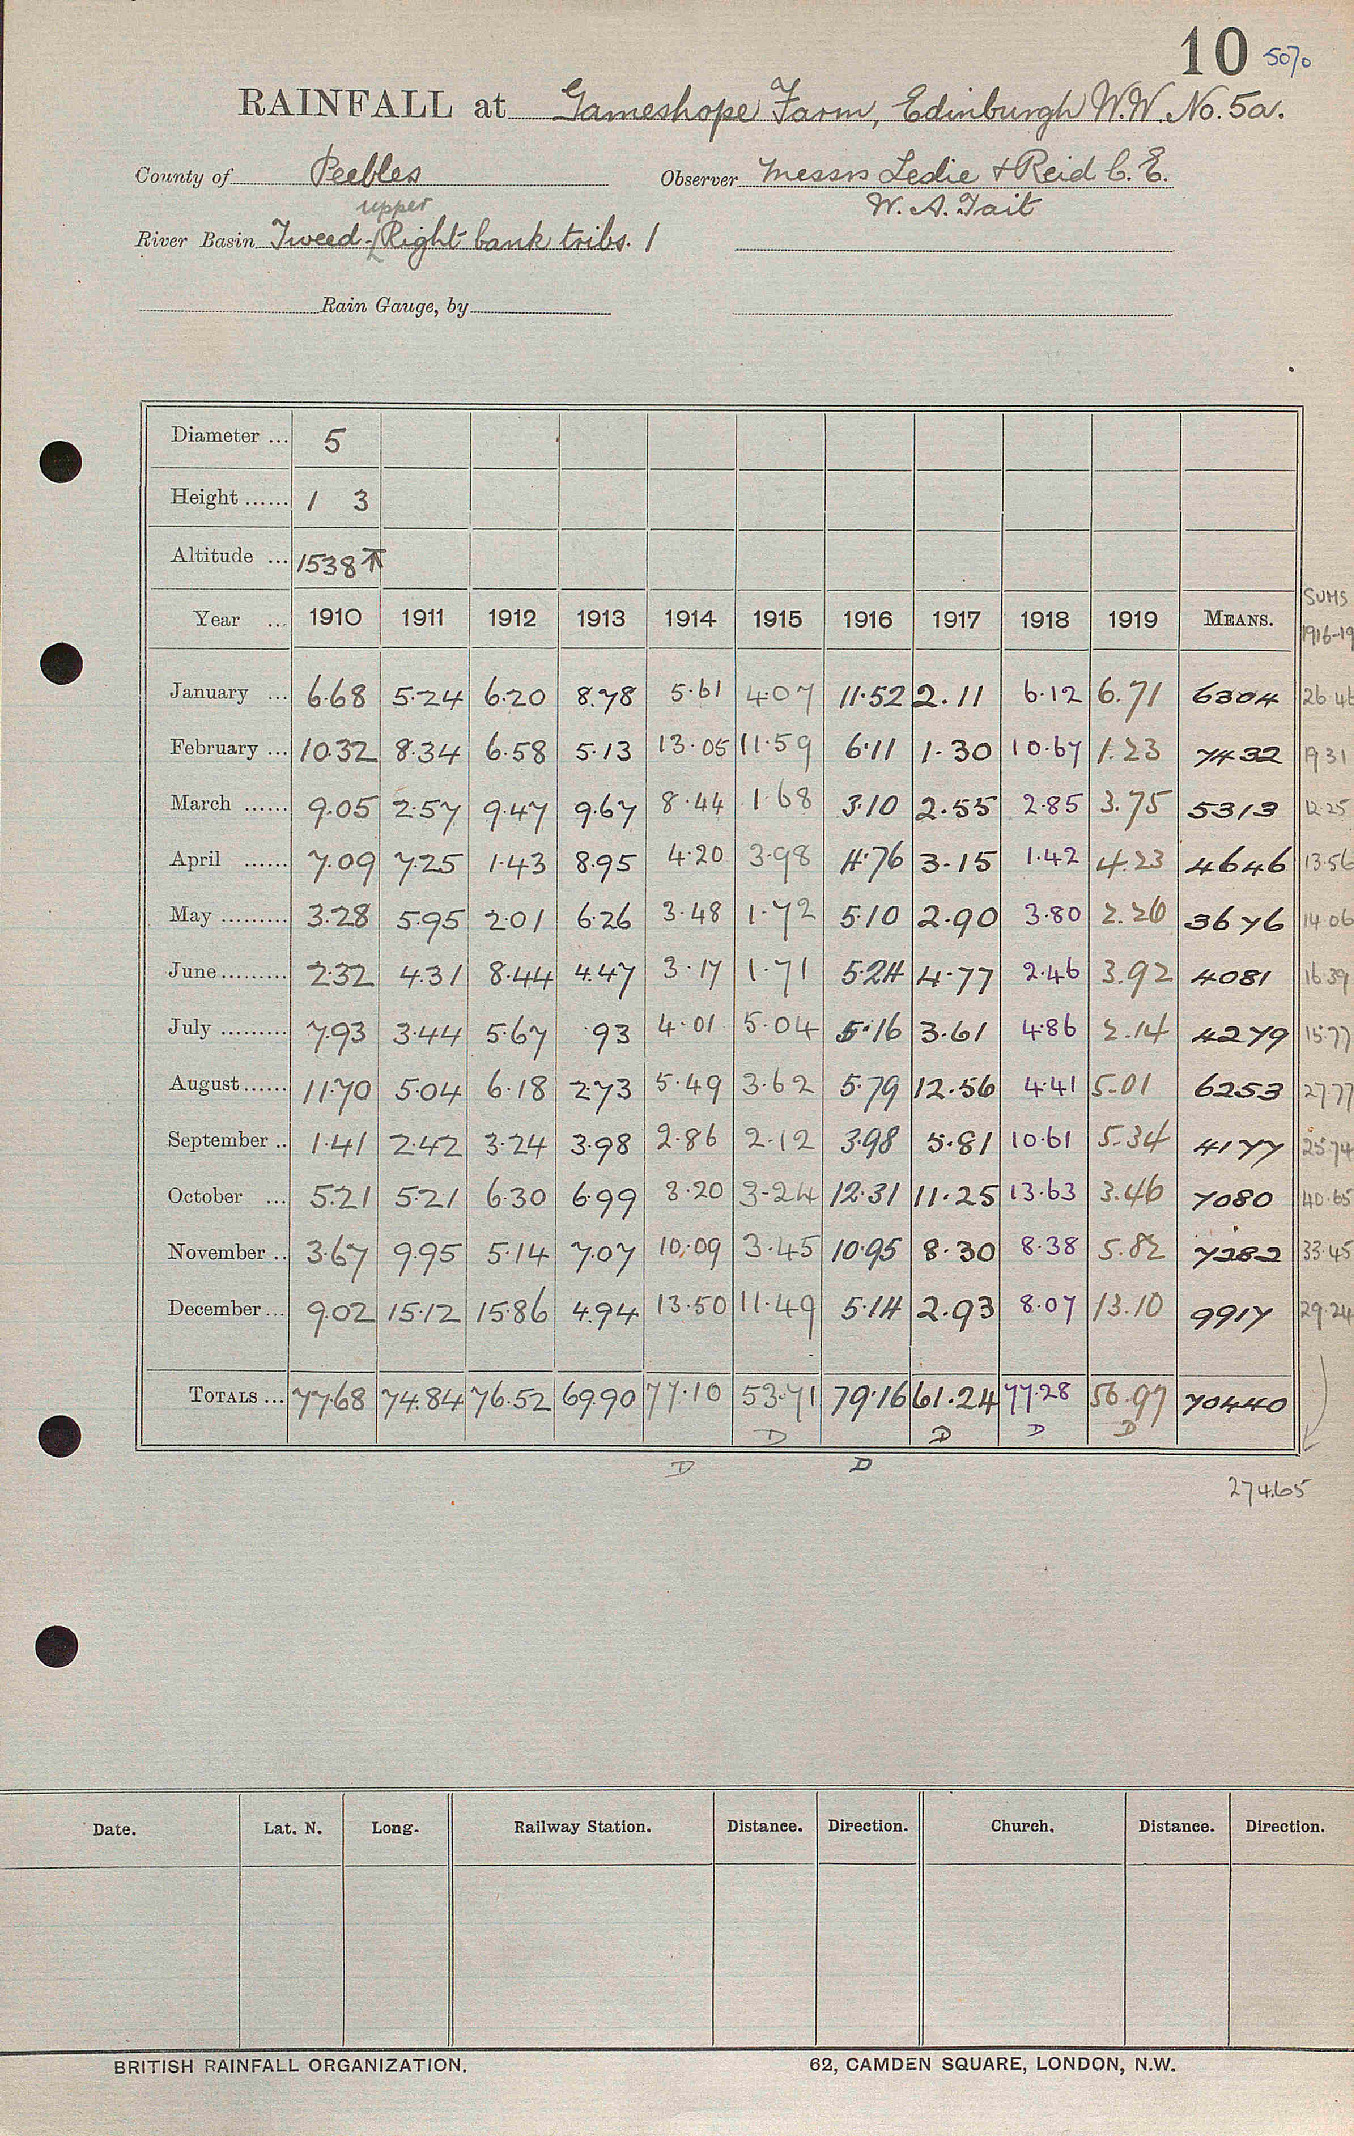 10 5070
RAINFALL at Gameshope Farm, Edinburgh W.W. No. 5a.
County of Peebles Observer Messrs Leslie & Reid C. E.
upper W. A. Tait
River Basin Tweed - Right bank tribs. 1
Rain Gauge, by
Diameter ... 5
Height ...... 1 3
Altitude ... 1538 T
SUMS
Year ... 1910 1911 1912 1913 1914 1915 1916 1917 1918 1919 MEANS. 1916-19
January ... 6.68 5.24 6.20 8.78 5.61 4.07 11.52 2.11 6.12 6.71 6304 26.46
February ... 10.32 8.34 6.58 5.13 13.05 11.59 6.11 1.30 10.67 1.23 7432 19.31
March ...... 9.05 2.57 9.47 9.67 8.44 1.68 3.10 2.55 2.85 3.75 5313 12.25
April ...... 7.09 7.25 1.43 8.95 4.20 3.98 4.76 3.15 1.42 4.23 4646 13.56
May ......... 3.28 5.95 2.01 6.26 3.48 1.72 5.10 2.90 3.80 2.26 3676 14.06
June ......... 2.32 4.31 8.44 4.47 3.17 1.71 5.24 4.77 2.46 3.92 4081 16.39
July ......... 7.93 3.44 5.67 .93 4.01 5.04 5.16 3.61 4.86 2.14 4279 15.77
August ...... 11.70 5.04 6.18 2.73 5.49 3.62 5.79 12.56 4.41 5.01 6253 27.77
September .. 1.41 2.42 3.24 3.98 2.86 2.12 3.98 5.81 10.61 5.34 4177 25.74
October ... 5.21 5.21 6.30 6.99 8.20 3.24 12.31 11.25 13.63 3.46 7080 40.65
November .. 3.67 9.95 5.14 7.07 10.09 3.45 10.95 8.30 8.38 5.82 7282 33.45
December ... 9.02 15.12 15.86 4.94 13.50 11.49 5.14 2.93 8.07 13.10 9917 29.24
TOTALS ... 77.68 74.84 76.52 69.90 77.10 53.71 79.16 61.24 77.28 56.97 70440
D D D D
D D
274.65
Date. Lat. N. Long. Railway Station. Distance. Direction. Church. Distance. Direction.
BRITISH RAINFALL ORGANIZATION. 62, CAMDEN SQUARE, LONDON, N.W.